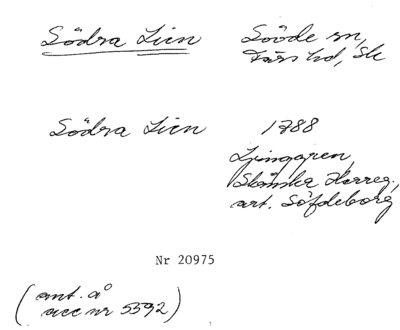 Södra Lien Sövde sn,
Färs hd, Sk
Södra Lien 1788
Ljunggren,
Skånska Herreg.,
art. Söfdeborg
Nr 20975
(ant. å
acc nr 5592)